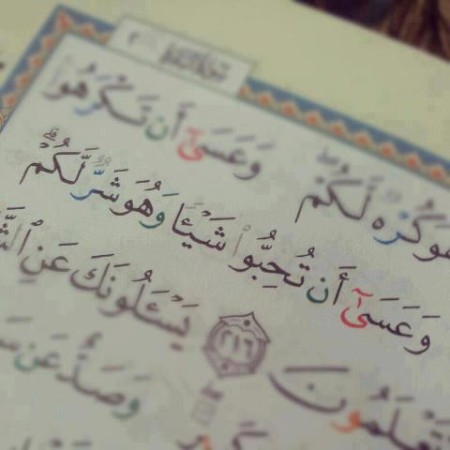 وَهُوَ كُرْهٌ لَّكُمْ ۖ وَعَسَىٰٓ أَن تَكْرَهُوا۟
وَعَسَىٰٓ أَن تُحِبُّوا۟ شَيْـًٔا وَهُوَ شَرٌّ لَّكُمْ ۗ
تَعْلَمُونَ ٢١٦ يَسْـَٔلُونَكَ عَنِ
وَصَدٌّ عَن